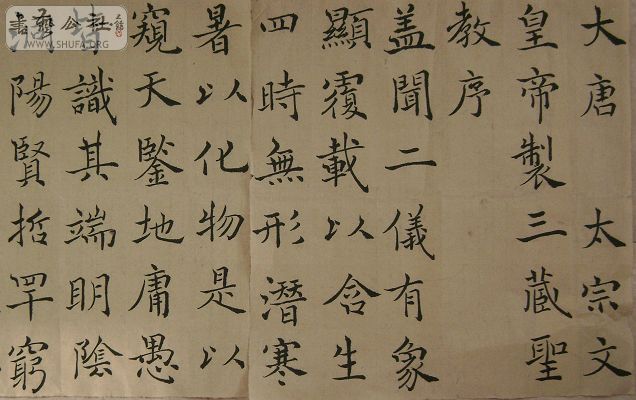 大唐 太宗文
皇帝製三藏聖
教序
盖聞二儀有象
顯覆載以含生
四時無形潛寒
暑以化物是以
窺天鑒地庸愚
皆識其端明陰
陽賢哲罕窮
書藝公社
WWW.SHUFA.ORG